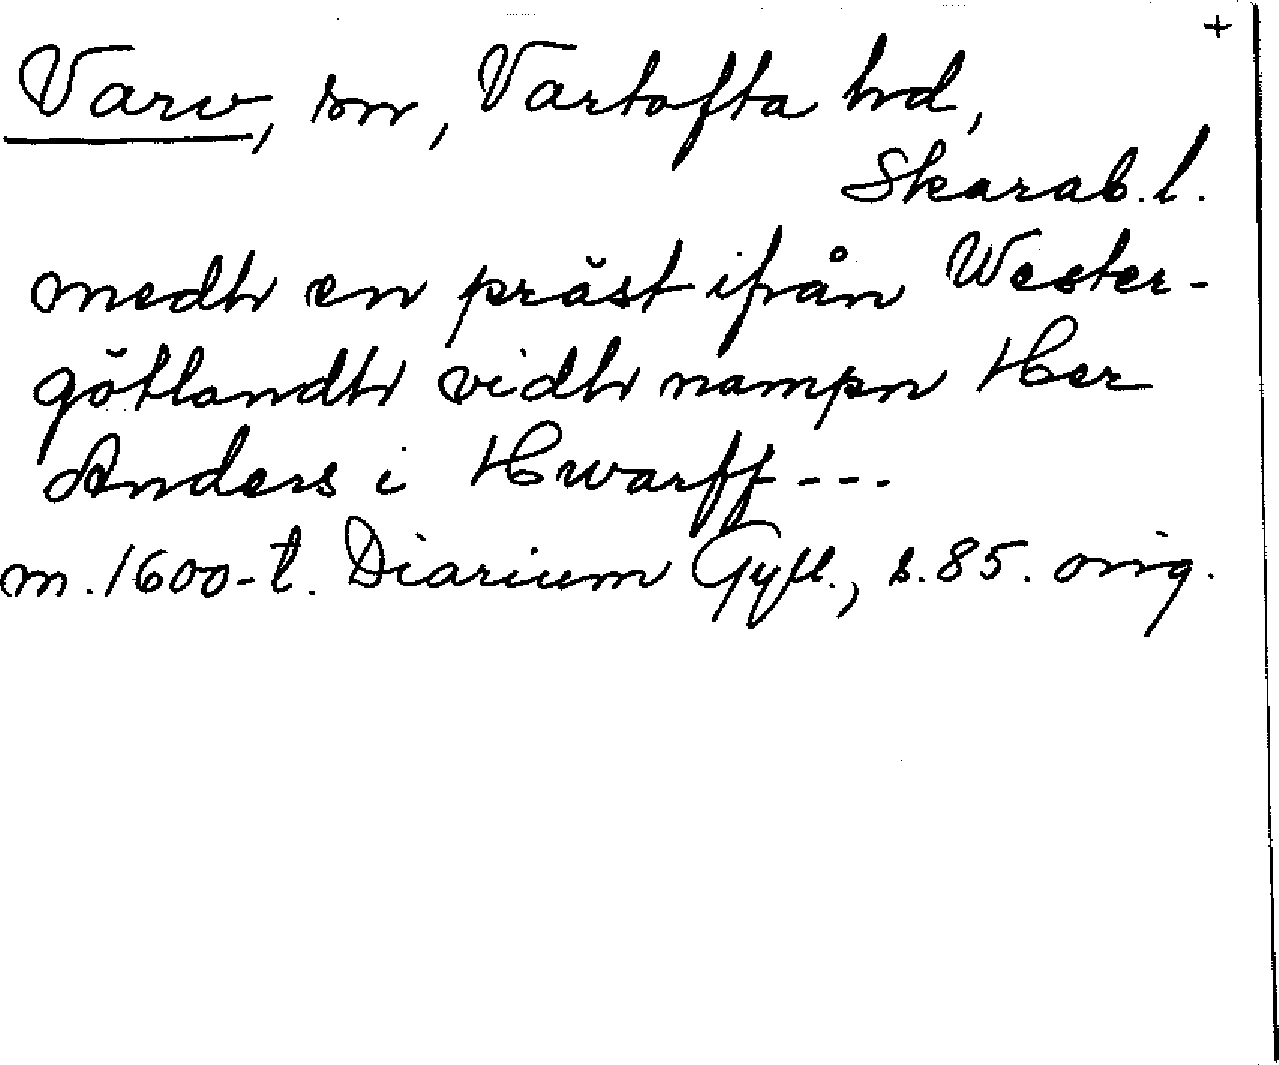 +
Varv, sn, Vartofta hd,
Skarab. l.
medh en präst ifrån Wester-
götlandh vidh nampn Her
Anders i Hwarff ---
m. 1600-t. Diarium Gyll., s. 85. orig.